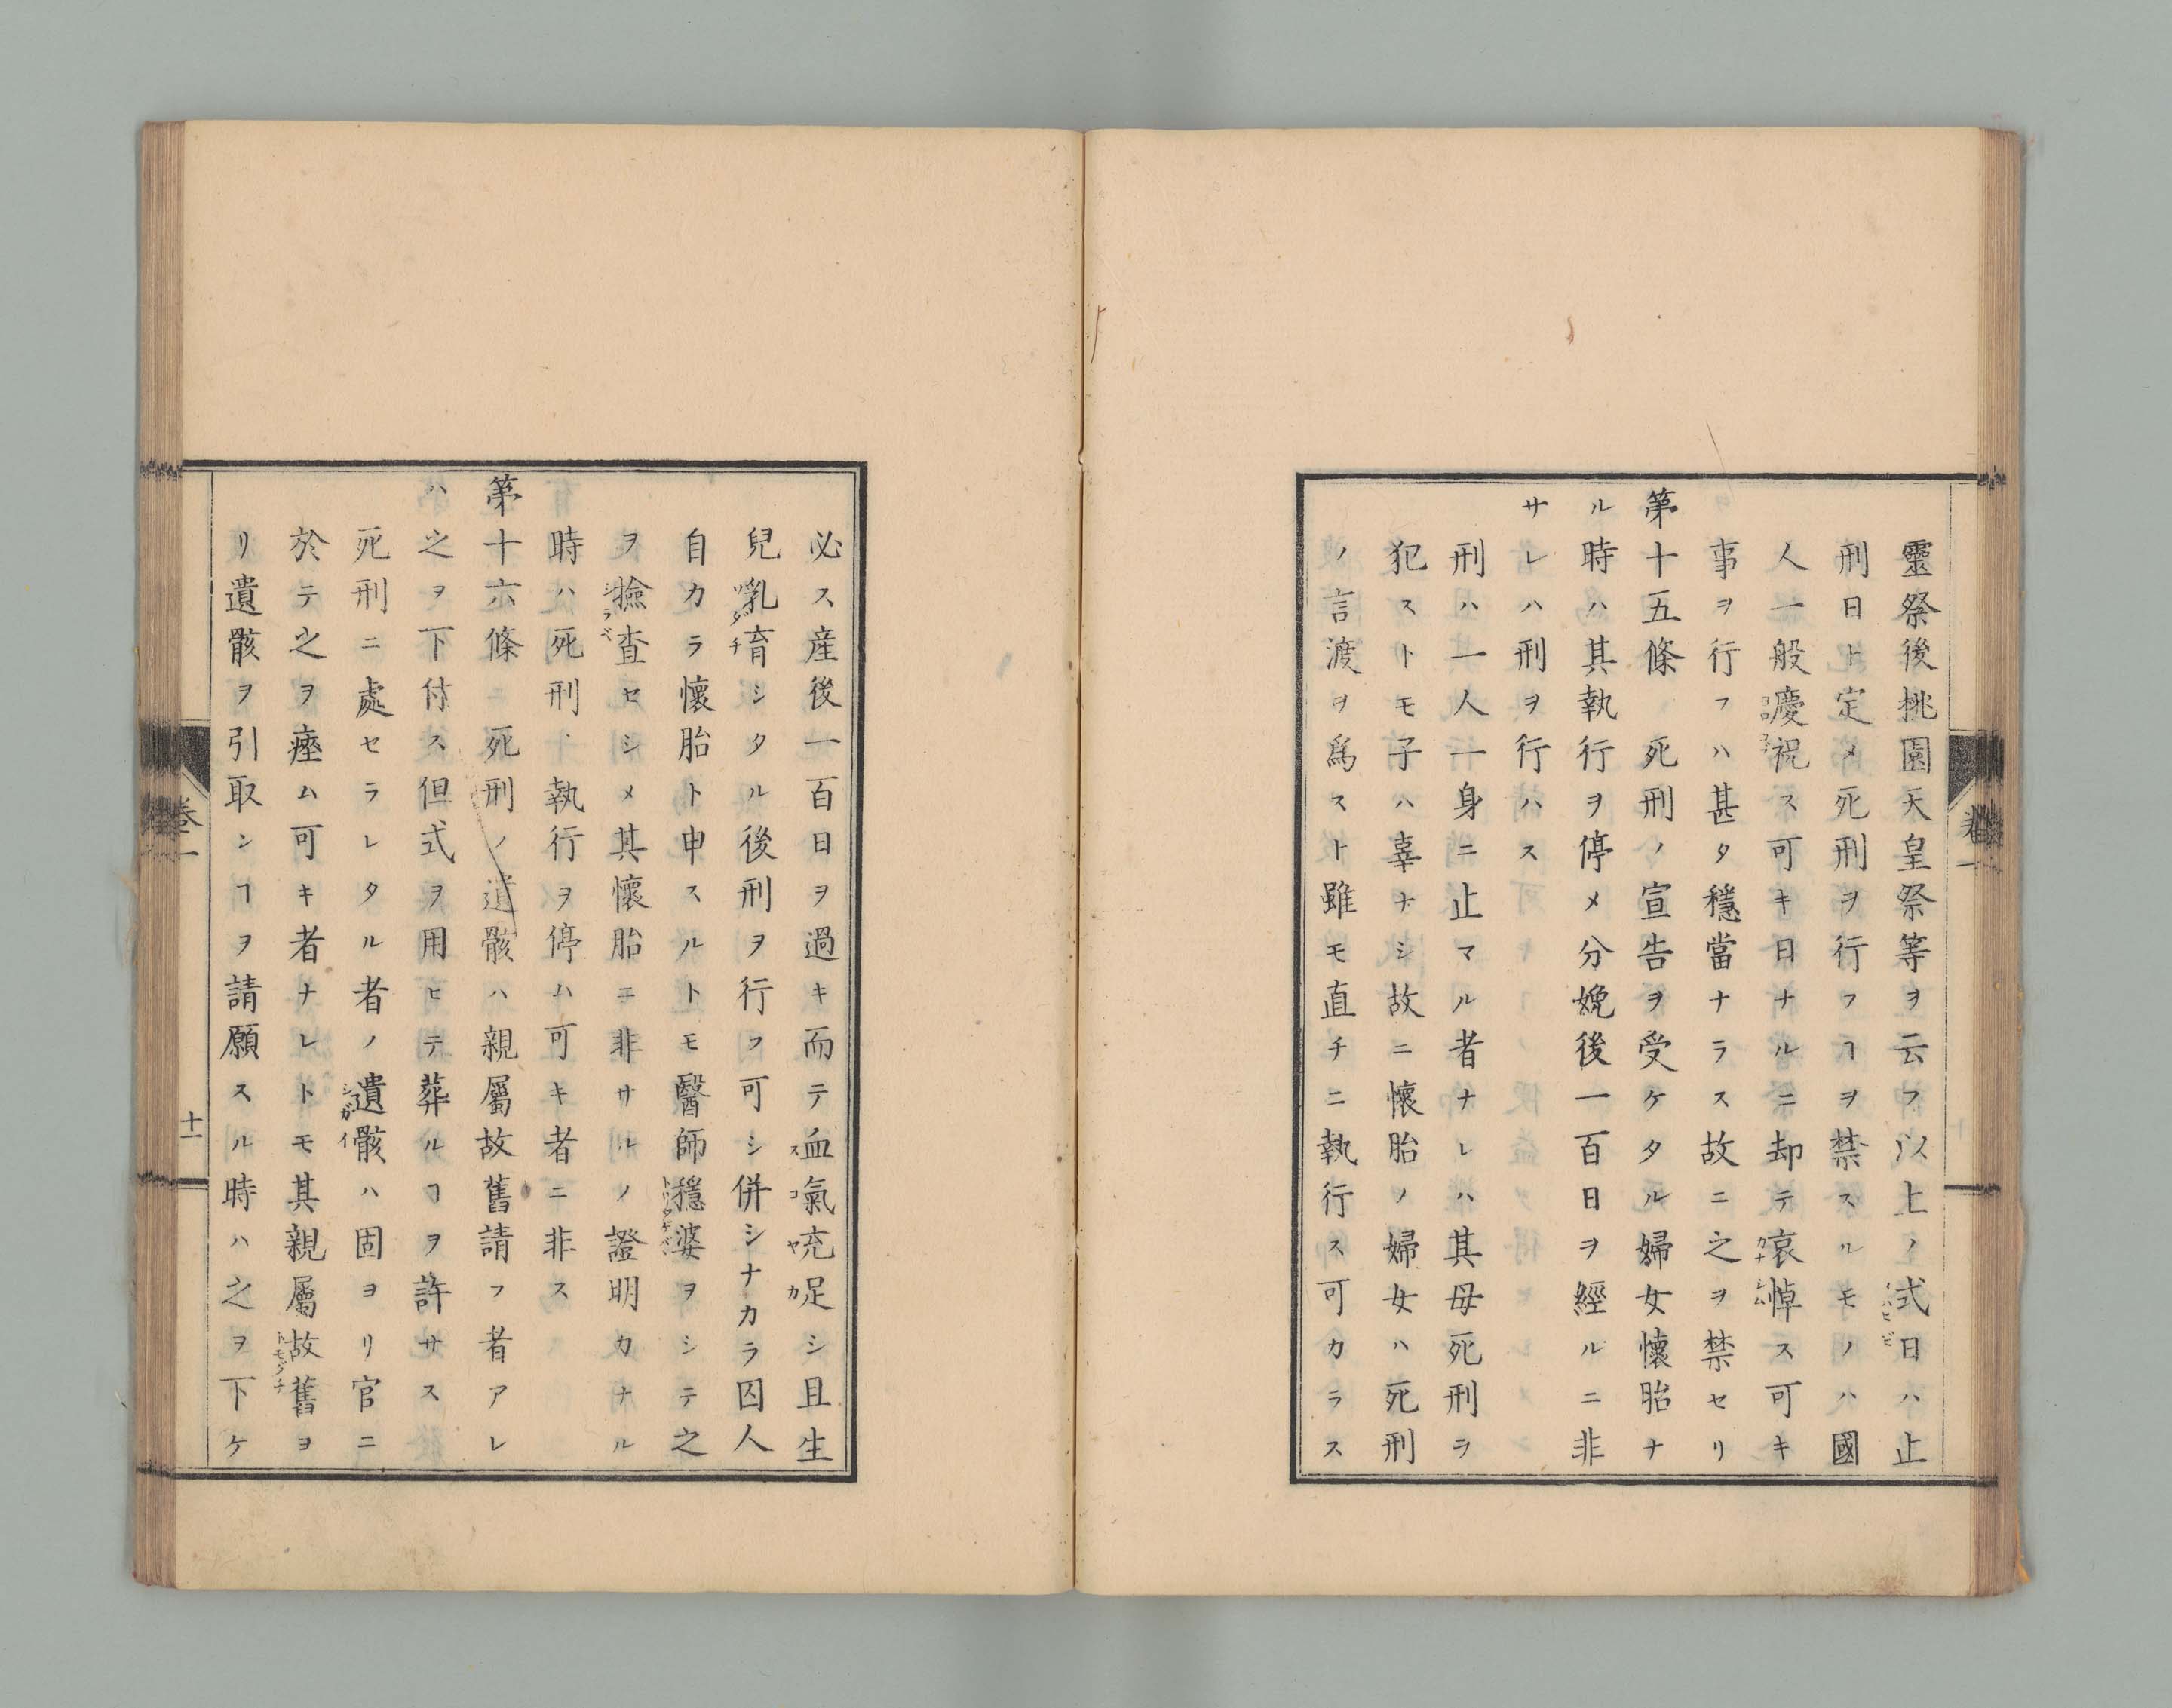 靈祭後桃園天皇祭等ヲ云フ以上ノ式日ハ止
刑日ト定メ死刑ヲ行フヿヲ禁スルモノハ國
人一般慶祝ス可キ日ナルニ却テ哀悼ス可キ
事ヲ行フハ甚タ穩當ナラス故ニ之ヲ禁セリ
第十五條 死刑ノ宣告ヲ受ケタル婦女懷胎ナ
ル時ハ其執行ヲ停メ分娩後一百日ヲ經ルニ非
サレハ刑ヲ行ハス
刑ハ一人一身ニ止マル者ナレハ其母死刑ヲ
犯ストモ子ハ辜ナシ故ニ懷胎ノ婦女ハ死刑
ノ言渡ヲ爲スト雖モ直チニ執行ス可カラス
卷一
必ス産後一百日ヲ過キ而テ血氣充足シ且生
兒乳育シタル後刑ヲ行フ可シ併シナカラ囚人
自カラ懷胎ト申スルトモ醫師穩婆ヲシテ之
ヲ撿査セシメ其懷胎ニ非サルノ證明カナル
時ハ死刑ノ執行ヲ停ム可キ者ニ非ス
第十六條 死刑ノ遺骸ハ親屬故舊請フ者アレ
ハ之ヲ下付ス但式ヲ用ヒテ葬ルヿヲ許サス
死刑ニ處セラレタル者ノ遺骸ハ固ヨリ官ニ
於テ之ヲ瘞ム可キ者ナレトモ其親屬故舊ヨ
リ遺骸ヲ引取ンヿヲ請願スル時ハ之ヲ下ケ
卷一
十一